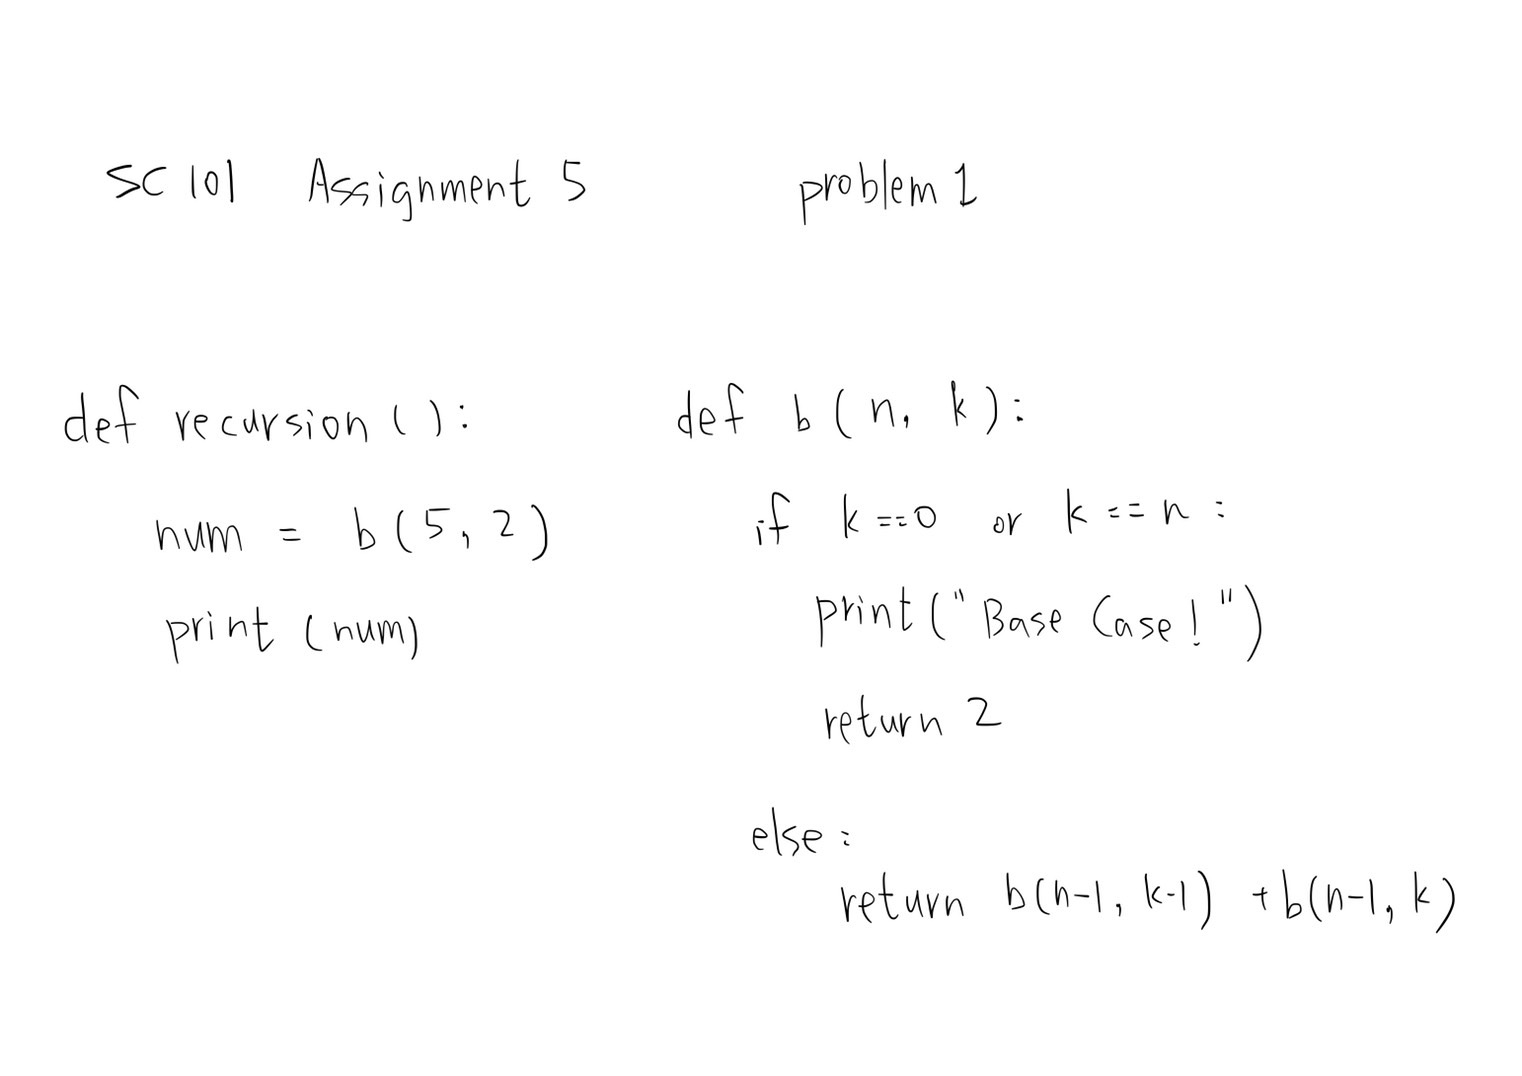 SC101 Assignment 5 problem 1
def recursion():
num = b(5, 2)
print (num)
def b(n, k):
if k==0 or k==n:
print("Base Case!")
return 2
else:
return b(n-1, k-1) +b(n-1, k)